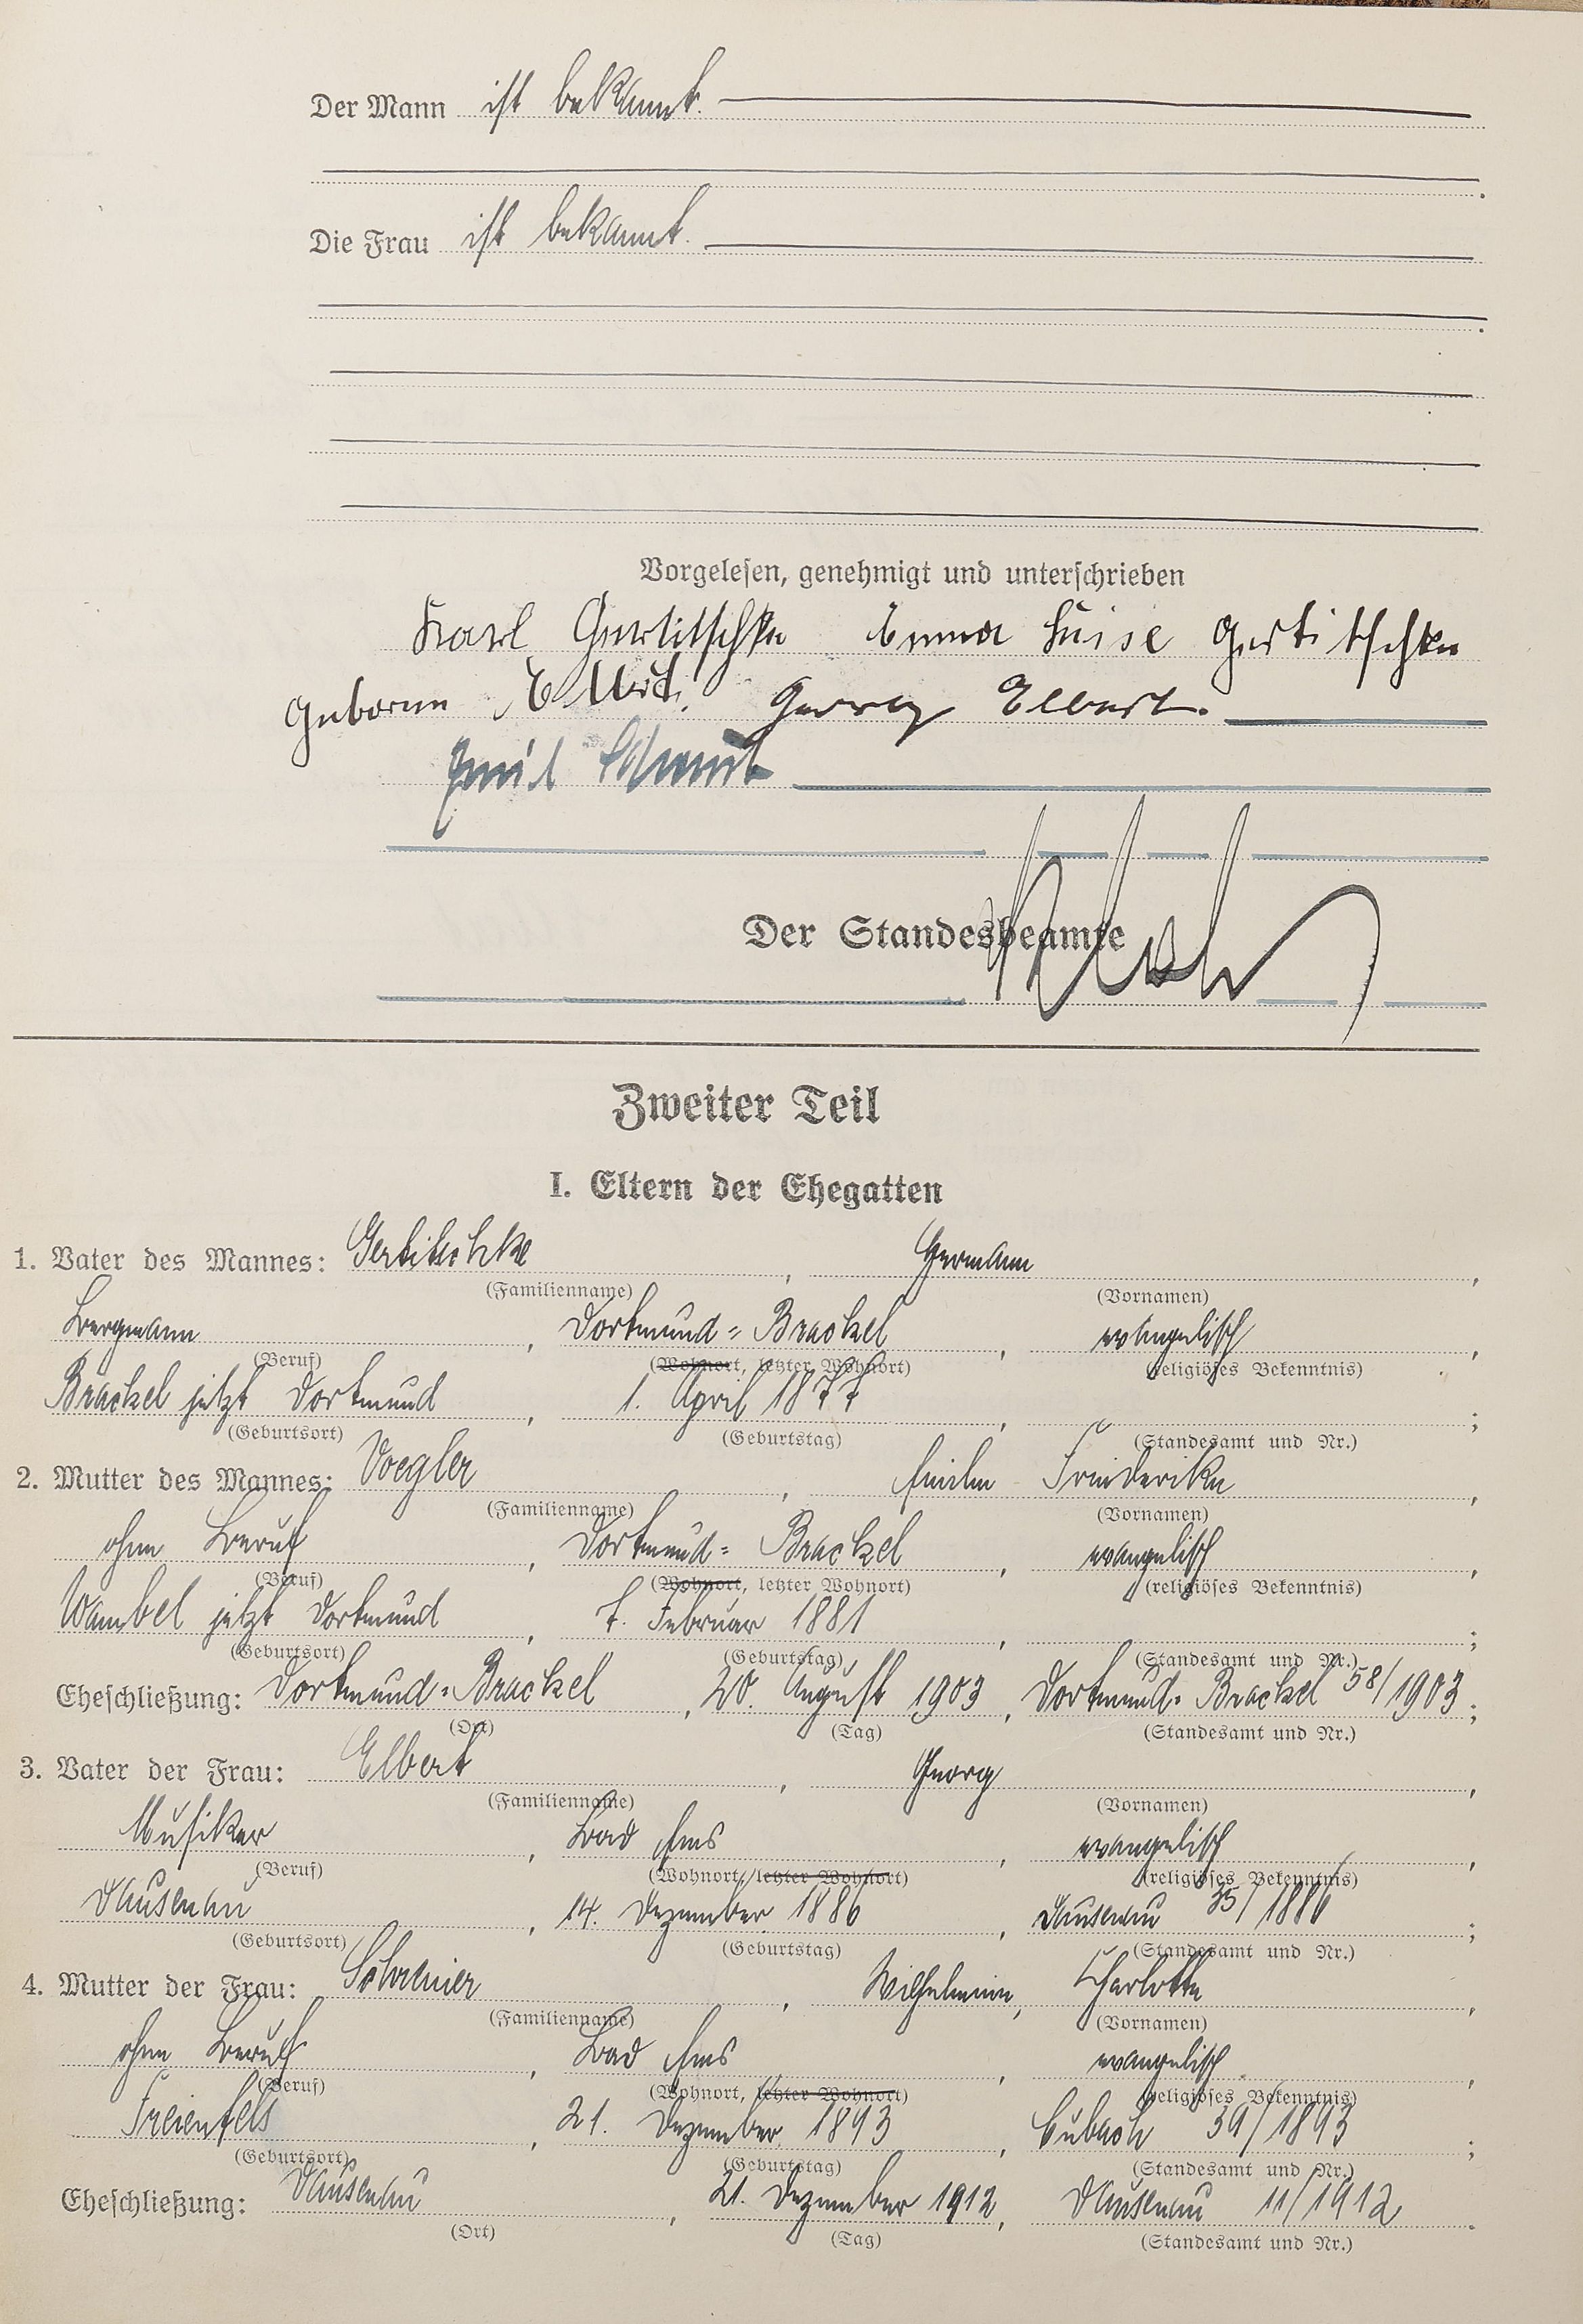 Der Mann ist bekannt.
Die Frau ist bekannt.
Vorgelesen, genehmigt und unterschrieben
Karl Gertitschke Emma Luise Gertitschke
geborene Elbert. Georg Elbert.
Emil
Der Standesbeamte
Zweiter Teil
I. Eltern der Ehegatten
1. Vater des Mannes: Gertitschke, Hermann,
(Familienname) (Vornamen)
Bergmann, Dortmund=Brackel, evangelisch,
(Beruf) (Wohnort, letzter Wohnort) (religiöses Bekenntnis)
Brackel jetzt Dortmund, 1. April 1877, ;
(Geburtsort) (Geburtstag) (Standesamt und Nr.)
2. Mutter des Mannes: Voegler, Emilie Friederike,
(Familienname) (Vornamen)
ohne Beruf, Dortmund=Brackel, evangelisch,
(Beruf) (Wohnort, letzter Wohnort) (religiöses Bekenntnis)
Wambel jetzt Dortmund, 7. Februar 1881, ;
(Geburtsort) (Geburtstag) (Standesamt und Nr.)
Eheschließung: Dortmund=Brackel, 20. August 1903, Dortmund=Brackel 58/1903;
(Ort) (Tag) (Standesamt und Nr.)
3. Vater der Frau: Elbert, Georg,
(Familienname) (Vornamen)
Musiker, Bad Ems, evangelisch,
(Beruf) (Wohnort, letzter Wohnort) (religiöses Bekenntnis)
Dausenau, 14. Dezember 1886, Dausenau 35/1886;
(Geburtsort) (Geburtstag) (Standesamt und Nr.)
4. Mutter der Frau: Schreiner, Wilhelmine, Charlotte,
(Familienname) (Vornamen)
ohne Beruf, Bad Ems, evangelisch,
(Beruf) (Wohnort, letzter Wohnort) (religiöses Bekenntnis)
Freienfels, 21. Dezember 1893, Cubach 39/1893;
(Geburtsort) (Geburtstag) (Standesamt und Nr.)
Eheschließung: Dausenau, 21. Dezember 1912, Dausenau 11/1912.
(Ort) (Tag) (Standesamt und Nr.)